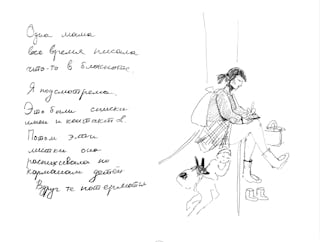 Одна мама
всё время писала
что-то в блокноте.
Я подсмотрела.
Это были списки
имен и контактов
Потом эти
листки она
распихивала по
карманам детей
Вдруг те потеряются